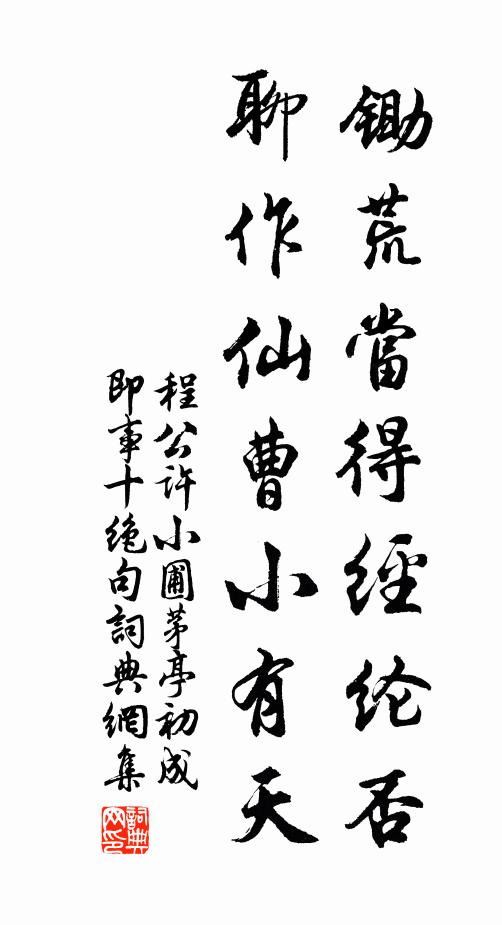 鋤荒當得經纶否
聊作仙曹小有天
程公许小圃茅亭初成
即事十絶句詞典網集
詞典
网印